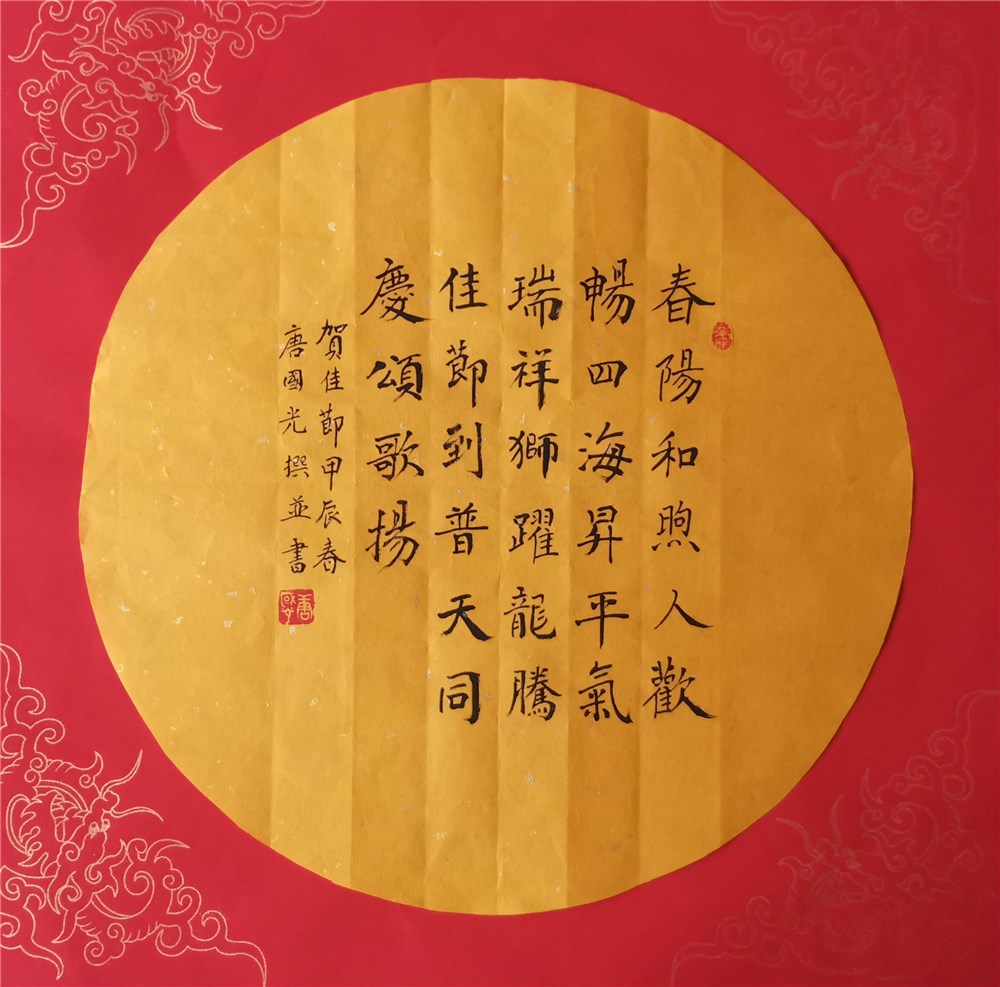 春陽和煦人歡
暢四海昇平氣
瑞祥獅躍龍騰
佳節到普天同
慶頌歌揚
賀佳節甲辰春
唐國光撰並書